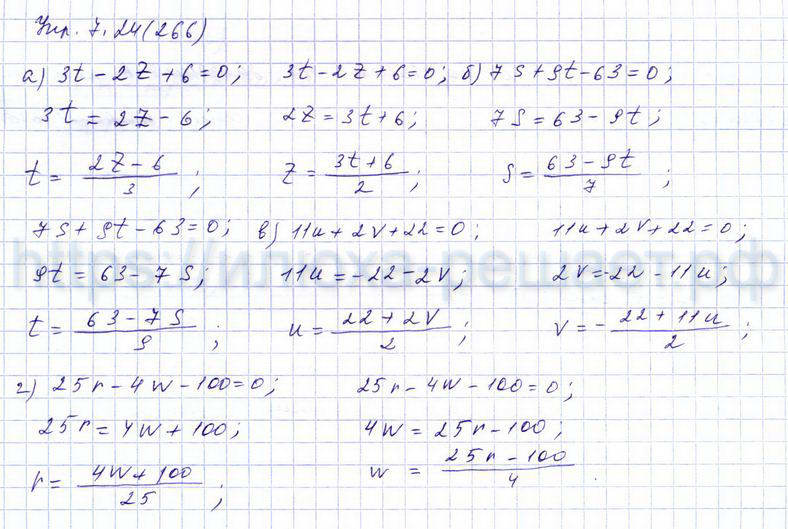 Упр. 7.24(266)
а) 3t - 2z + 6 = 0; 3t - 2z + 6 = 0; б) 7s + 9t - 63 = 0;
3t = 2z - 6; 2z = 3t + 6; 7s = 63 - 9t;
t = (2z - 6)/3; z = (3t + 6)/2; s = (63 - 9t)/7;
7s + 9t - 63 = 0; в) 11u + 2v + 22 = 0; 11u + 2v + 22 = 0;
https://илюха-решает.рф
9t = 63 - 7s; 11u = -22 - 2v; 2v = -22 - 11u;
t = (63 - 7s)/9; u = (22 + 2v)/2; v = -(22 + 11u)/2;
г) 25r - 4w - 100 = 0; 25r - 4w - 100 = 0;
25r = 4w + 100; 4w = 25r - 100;
r = (4w + 100)/25; w = (25r - 100)/4